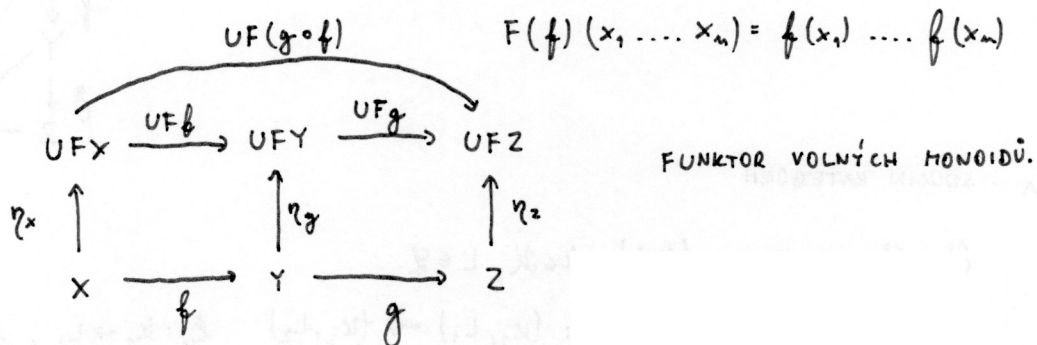 UF(g∘f)
F(f)(x₁ .... xₙ) = f(x₁) .... f(xₙ)
UFX UFf UFY UFg UFZ
FUNKTOR VOLNÝCH MONOIDŮ.
ηx ηy ηz
X f Y g Z